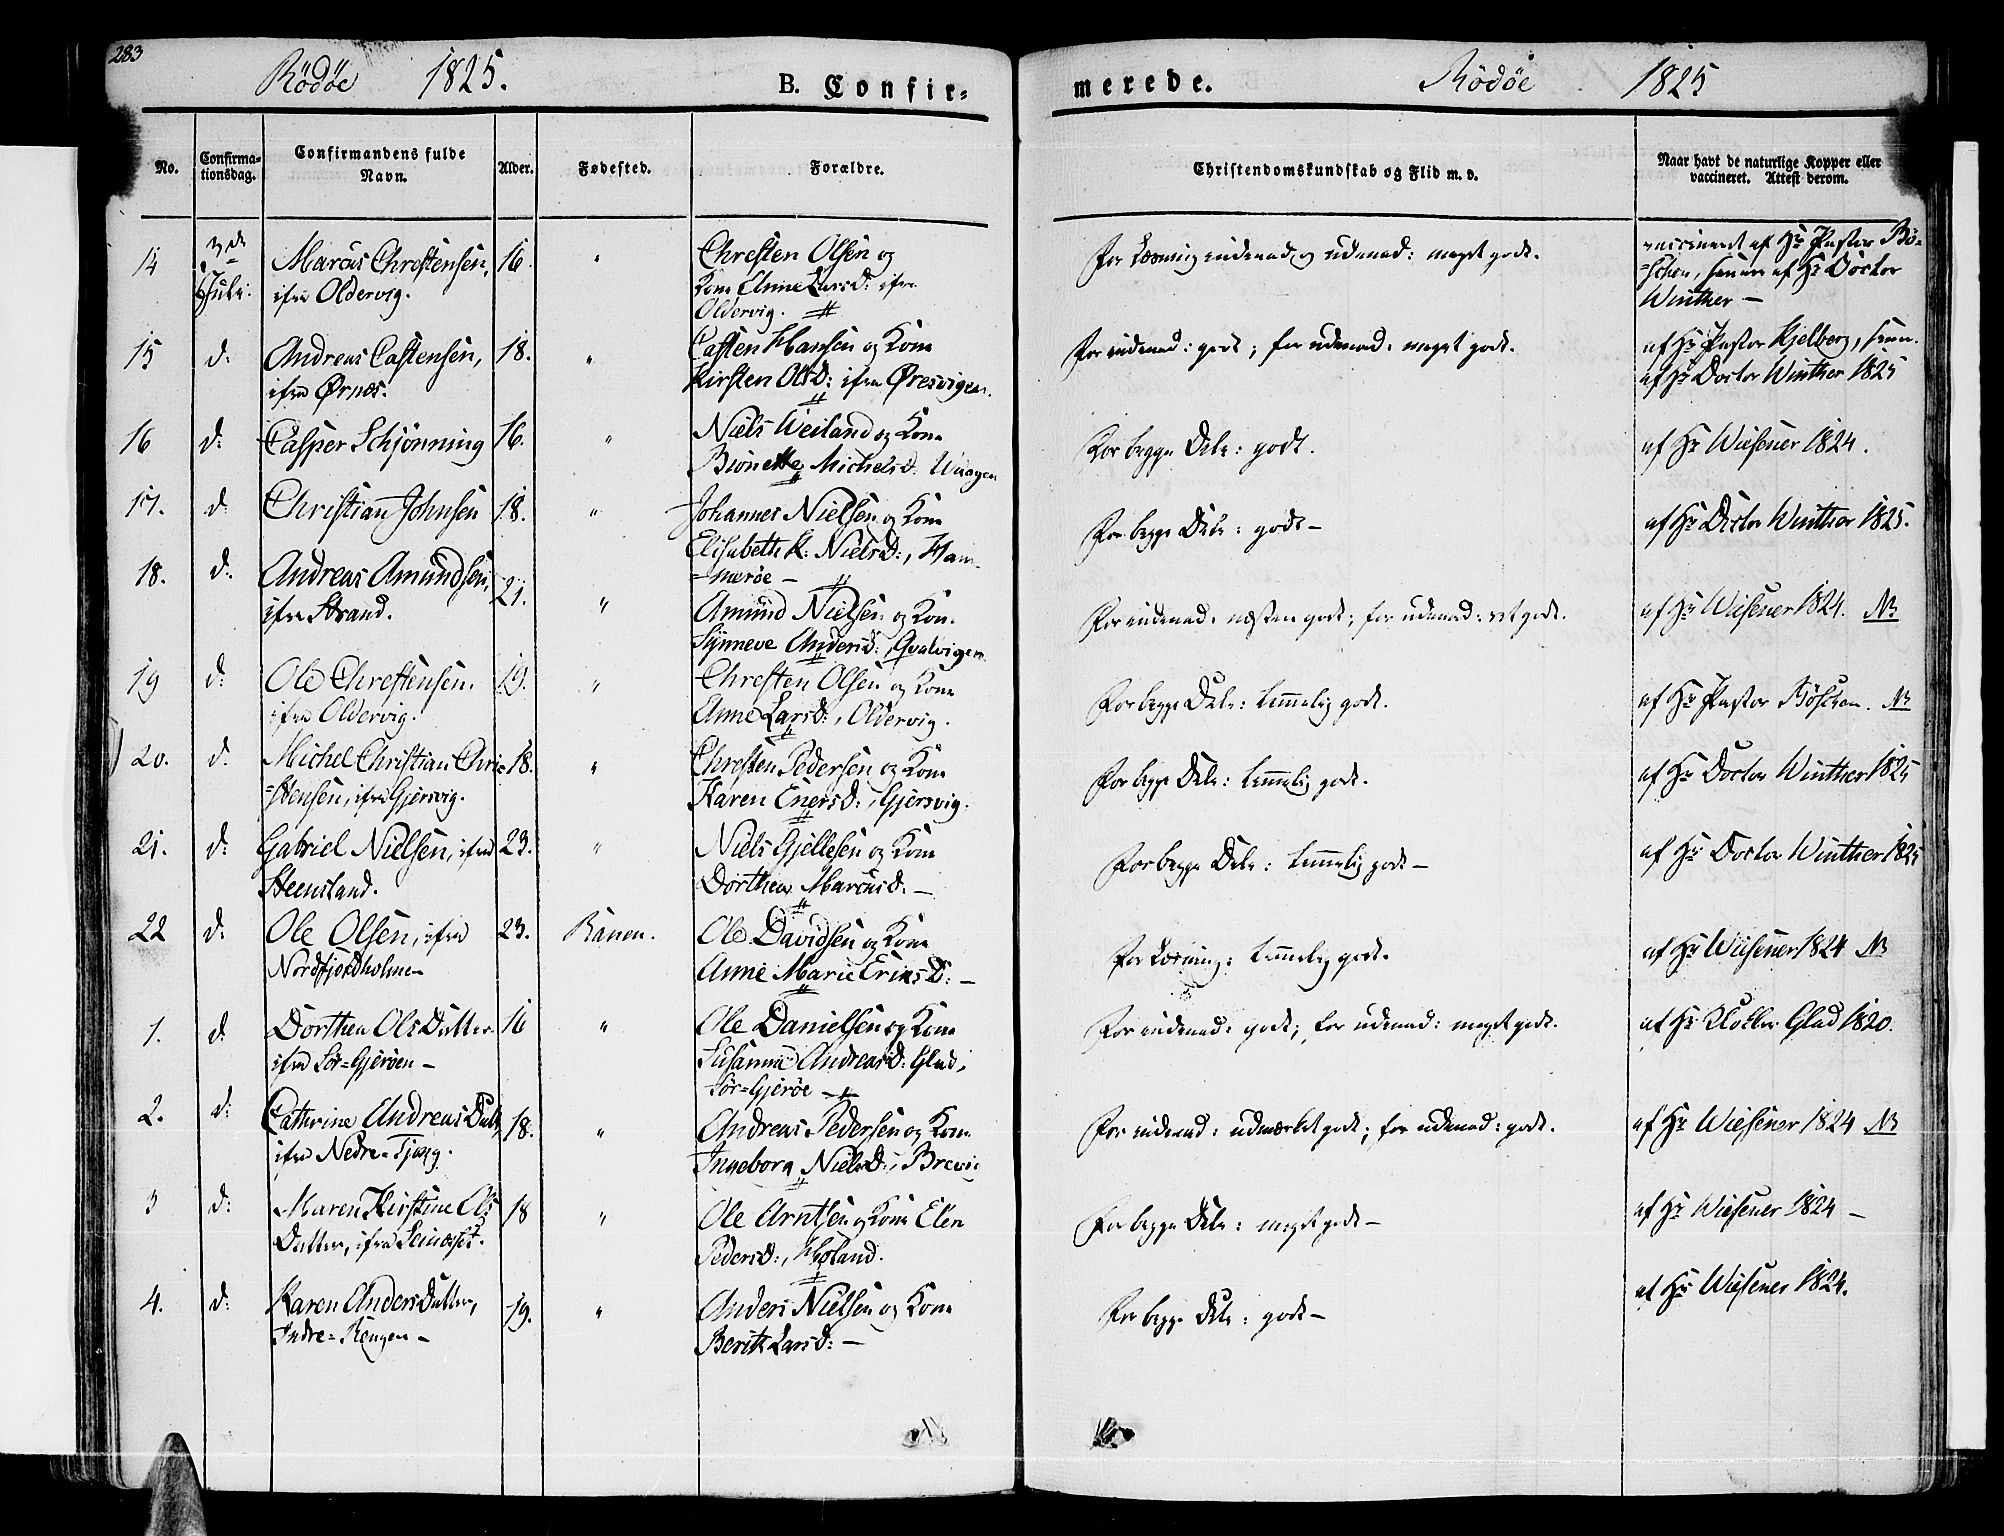 283
Rödöe 1825.
B. Confir=
merede.
Rödöe 1825
No.
Confirma-
tionsdag.
Confirmandens fulde
Navn.
Alder.
Fødested.
Forældre.
Christendomskundskab og Flid m. v.
Naar havt de naturlige Kopper eller
vaccineret. Attest derom.
14 3de Marcus Chrestensen, 16. " Chresten Olsen og For Læsning indenad og udenad: meget godt. vaccineret af Hr Pastor Bö=
Juli. ifra Oldervig. Kone Anne LarsD: ifra =schen, af Hr Doctor
Oldervig. Winther —
15 d: Andreas Castensen, 18. " Casten Hansen og Kone For indenad: godt; for udenad: meget godt. af Hr Pastor Kjelberg,
ifra Ørnæs. Kirsten OlsD: ifra Øresvigen. af Hr Doctor Winther 1825
16 d: Casper Schjönning 16. " Niels Weiland og Kone For begge Dele: godt. af Hr Wiesener 1824.
Bionette MichelsD: Waagen
17. d: Christian Johnsen 18. " Johannes Nielsen og Kone For begge Dele: godt — af Hr Doctor Winther 1825.
Elisabeth K: NielsD:, Ham=
=meröe —
18. d: Andreas Amundsen, 21. " Amund Nielsen og Kone For indenad: næsten godt; for udenad: ret godt. af Hr Wiesener 1824. NB
ifra Strand. Synneve AndersD:, Qvalvigen
19 d: Ole Chrestensen. 19. " Chresten Olsen og Kone For begge Dele: temmelig godt. af Hr Pastor Böschen. NB
ifra Oldervig. Anne LarsD:, Oldervig.
20. d: Michel Christian Chri= 18. " Chresten Pedersen og Kone For begge Dele: temmelig godt. af Hr Doctor Winther 1825
=stensen, ifra Gjersvig. Karen EnersD:, Gjersvig.
21. d: Gabriel Nielsen, ifra 23. " Niels Gjellesen og Kone For begge Dele: temmelig godt — af Hr Doctor Winther 1825
Steensland. Dorthea MarcusD: —
22 d: Ole Olsen, ifra 23. Ranen. Ole Davidsen og Kone For Læsning: temmelig godt. af Hr Wiesener 1824 NB
Nordfjordholmen Anne Marie EriksD: —
1. d: Dorthea OlsDatter 16 " Ole Danielsen og Kone For indenad: godt; for udenad: meget godt. af Hr Klokker Glad 1820.
ifra Sör=Gjeröen — Susanna AndreasD: Glad,
Sör=Gjeröe —
2. d: Cathrine AndreasDatt, 18. " Andreas Pedersen og Kone For indenad: udmærket godt; for udenad: godt. af Hr Wiesener 1824 NB
ifra Nedre=Tjong. Ingeborg NielsD:, Brevi
3 d: Maren Kirstine Ols 18 " Ole Arntsen og Kone Elen For begge Dele: meget godt — af Hr Wiesener 1824 —
Datter, ifra Selnæsset. PedersD:, Höland.
4. d: Karen AndersDatter, 19. " Anders Nielsen og Kone For begge Dele: godt — af Hr Wiesener 1824.
Indre=Rengen — Berith LarsD: —